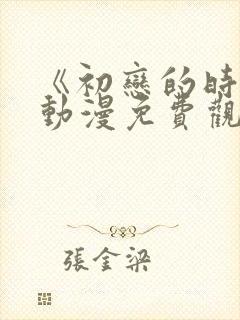 《初戀的時
動漫免費觀
張金梁